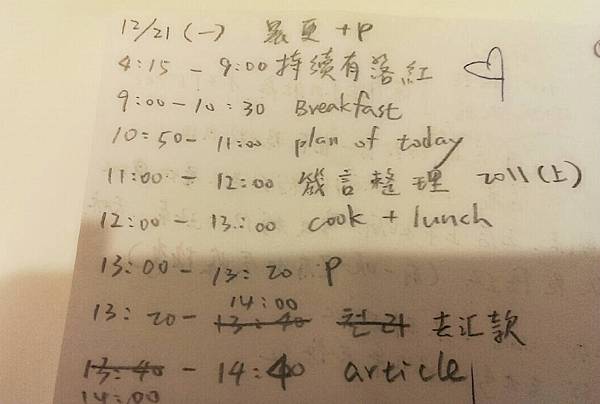 12/21 (一) 晨更 + P
4:15 - 9:00 持續有落紅
9:00 - 10:30 Breakfast
10:50 - 11:00 plan of today
11:00 - 12:00 箴言整理 2011(上)
12:00 - 13:00 cook + lunch
13:00 - 13:20 P
14:00
13:20 - 13:40 去汇款
13:40 - 14:40 article
14:00